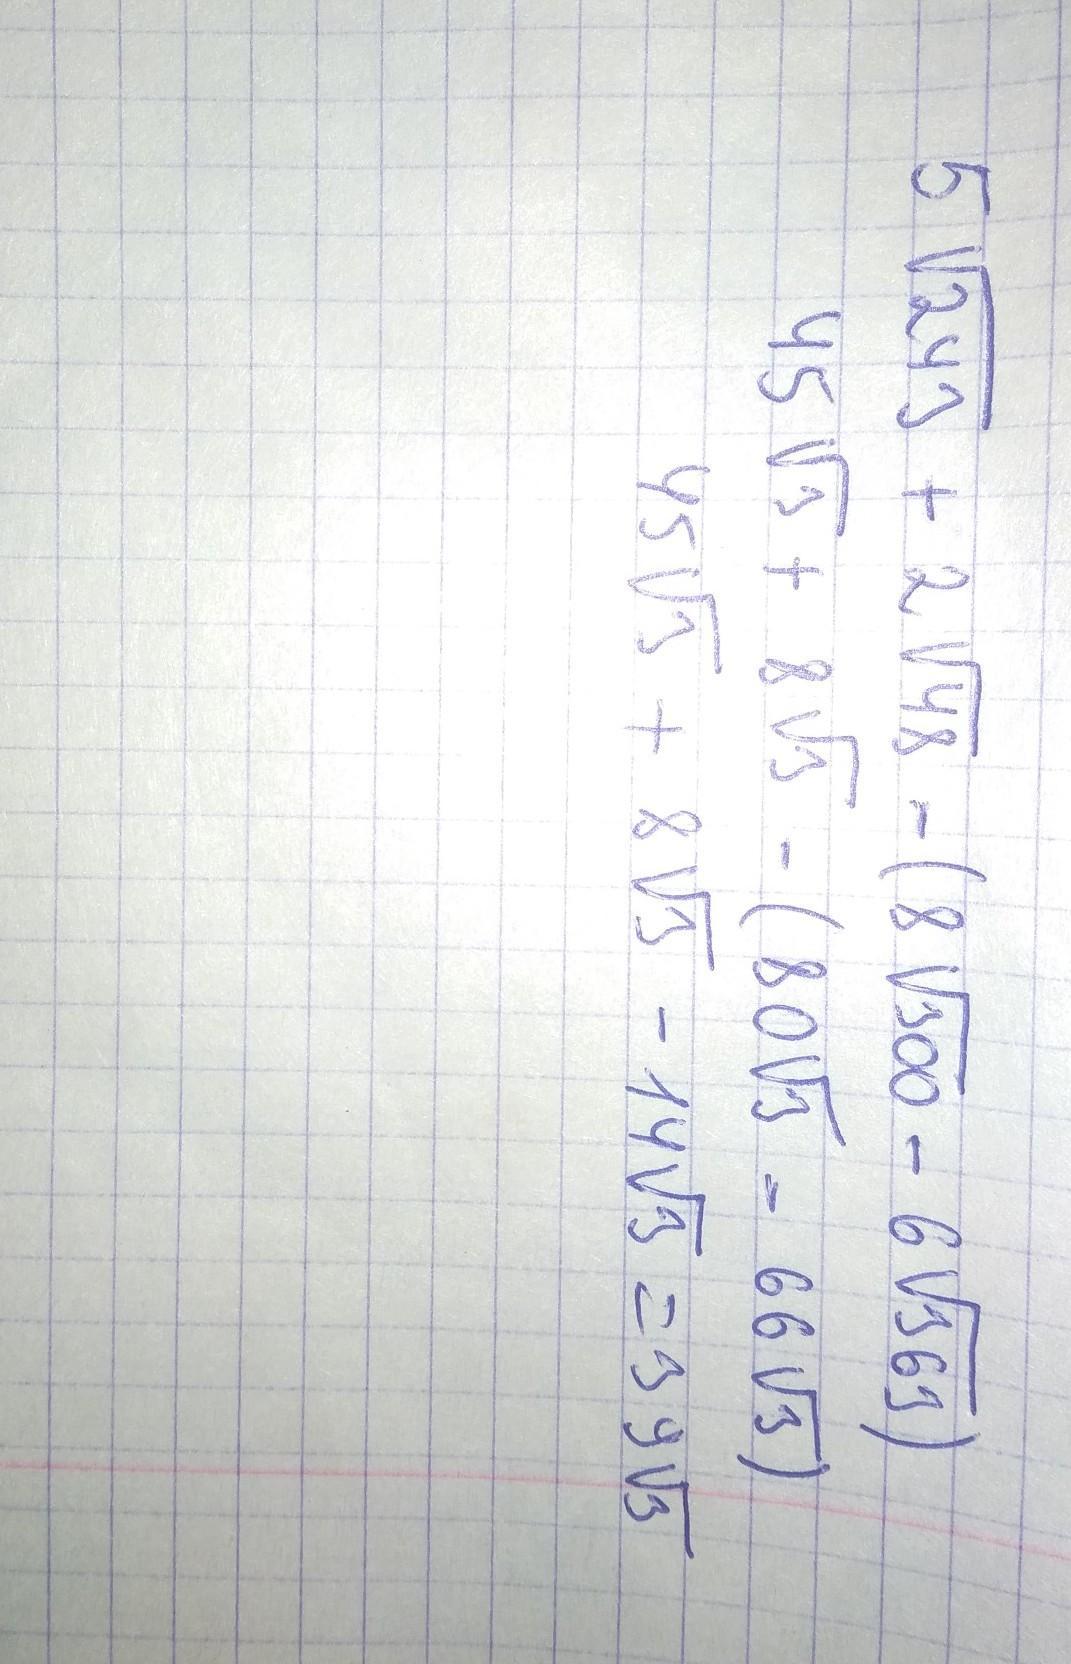 5√243 + 2√48 - (8√300 - 6√363)
45√3 + 8√3 - (80√3 - 66√3)
45√3 + 8√3 - 14√3 = 39√3